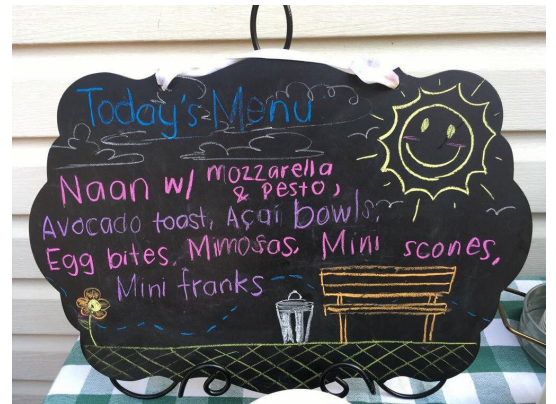 Today's Menu
Naan w/ mozzarella
& Pesto,
Avocado toast, Açai bowls,
Egg bites, Mimosas, Mini scones,
Mini franks